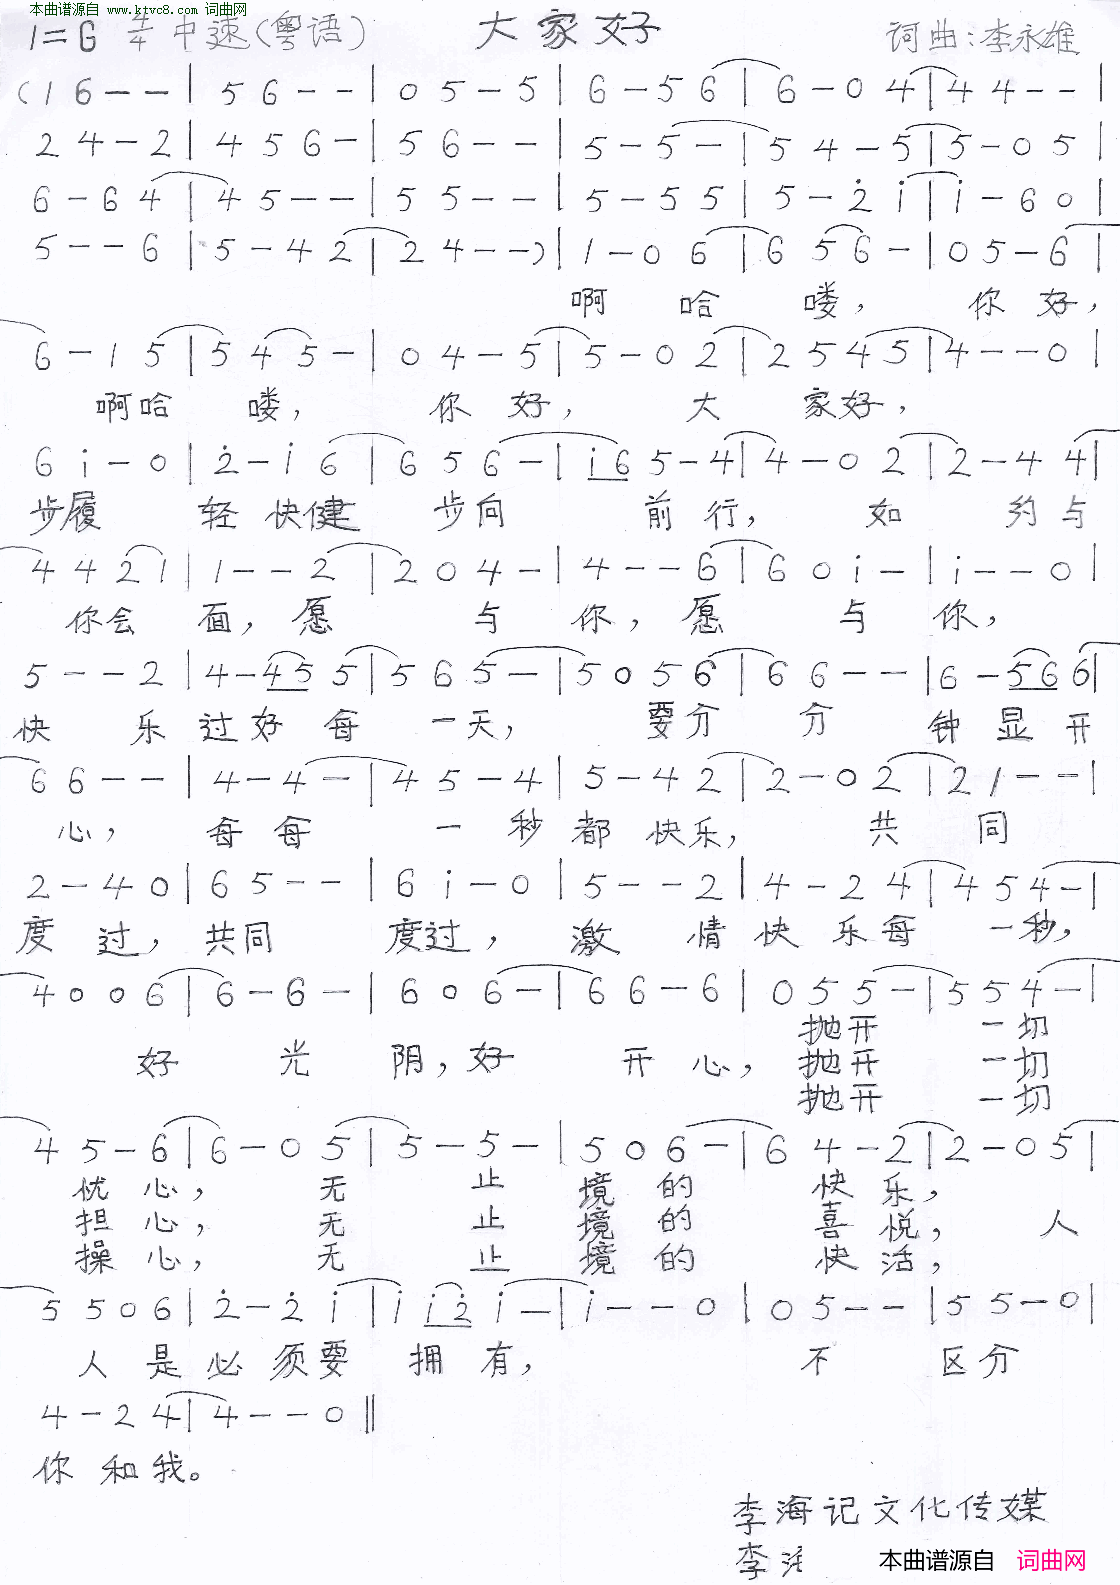 本曲谱源自 www.ktvc8.com 词曲网
1=G 4/4 中速(粤语) 大家好 词曲:李永雄
(1 6 - - | 5 6 - - | 0 5 - 5 | 6 - 5 6 | 6 - 0 4 | 4 4 - - |
2 4 - 2 | 4 5 6 - | 5 6 - - | 5 - 5 - | 5 4 - 5 | 5 - 0 5 |
6 - 6 4 | 4 5 - - | 5 5 - - | 5 - 5 5 | 5 - 2̇ i | i - 6 0 |
5 - - 6 | 5 - 4 2 | 2 4 - -) | 1 - 0 6 | 6 5 6 - | 0 5 - 6 |
啊 哈 喽, 你好,
6 - 1 5 | 5 4 5 - | 0 4 - 5 | 5 - 0 2 | 2 5 4 5 | 4 - - 0 |
啊哈 喽, 你 好, 大 家好,
6 i - 0 | 2̇ - i 6 | 6 5 6 - | i6 5 - 4 | 4 - 0 2 | 2 - 4 4 |
步履 轻快健 步向 前行, 如 约与
4 4 2 1 | 1 - - 2 | 2 0 4 - | 4 - - 6 | 6 0 i - | i - - 0 |
你会 面,愿 与 你,愿 与 你,
5 - - 2 | 4 - 45 5 | 5 6 5 - | 5 0 5 6 | 6 6 - - | 6 - 56 6 |
快 乐 过好每 一天, 要分 分 钟显开
6 6 - - | 4 - 4 - | 4 5 - 4 | 5 - 4 2 | 2 - 0 2 | 2 1 - - |
心, 每每 一秒都快乐, 共 同
2 - 4 0 | 6 5 - - | 6 i - 0 | 5 - - 2 | 4 - 2 4 | 4 5 4 - |
度 过,共同 度过, 激 情快乐每 一秒,
4 0 0 6 | 6 - 6 - | 6 0 6 - | 6 6 - 6 | 0 5 5 - | 5 5 4 - |
抛开 一切
好 光 阴,好 开 心,抛开 一切
抛开 一切
4 5 - 6 | 6 - 0 5 | 5 - 5 - | 5 0 6 - | 6 4 - 2 | 2 - 0 5 |
忧 心, 无 止 境的 快乐,
担 心, 无 止 境的 喜悦, 人
操 心, 无 止 境的 快活,
5 5 0 6 | 2̇ - 2̇ i | i i2̇ i - | i - - 0 | 0 5 - - | 5 5 - 0 |
人是必须要 拥有, 不 区分
4 - 2 4 | 4 - - 0 ‖
你和我。
李海记文化传媒
李
本曲谱源自 词曲网